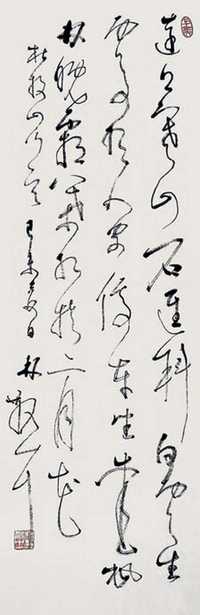 遠上寒山石徑斜白雲生
處有人家停車坐愛楓
林晚霜葉紅於二月花
杜牧山行 林散耳